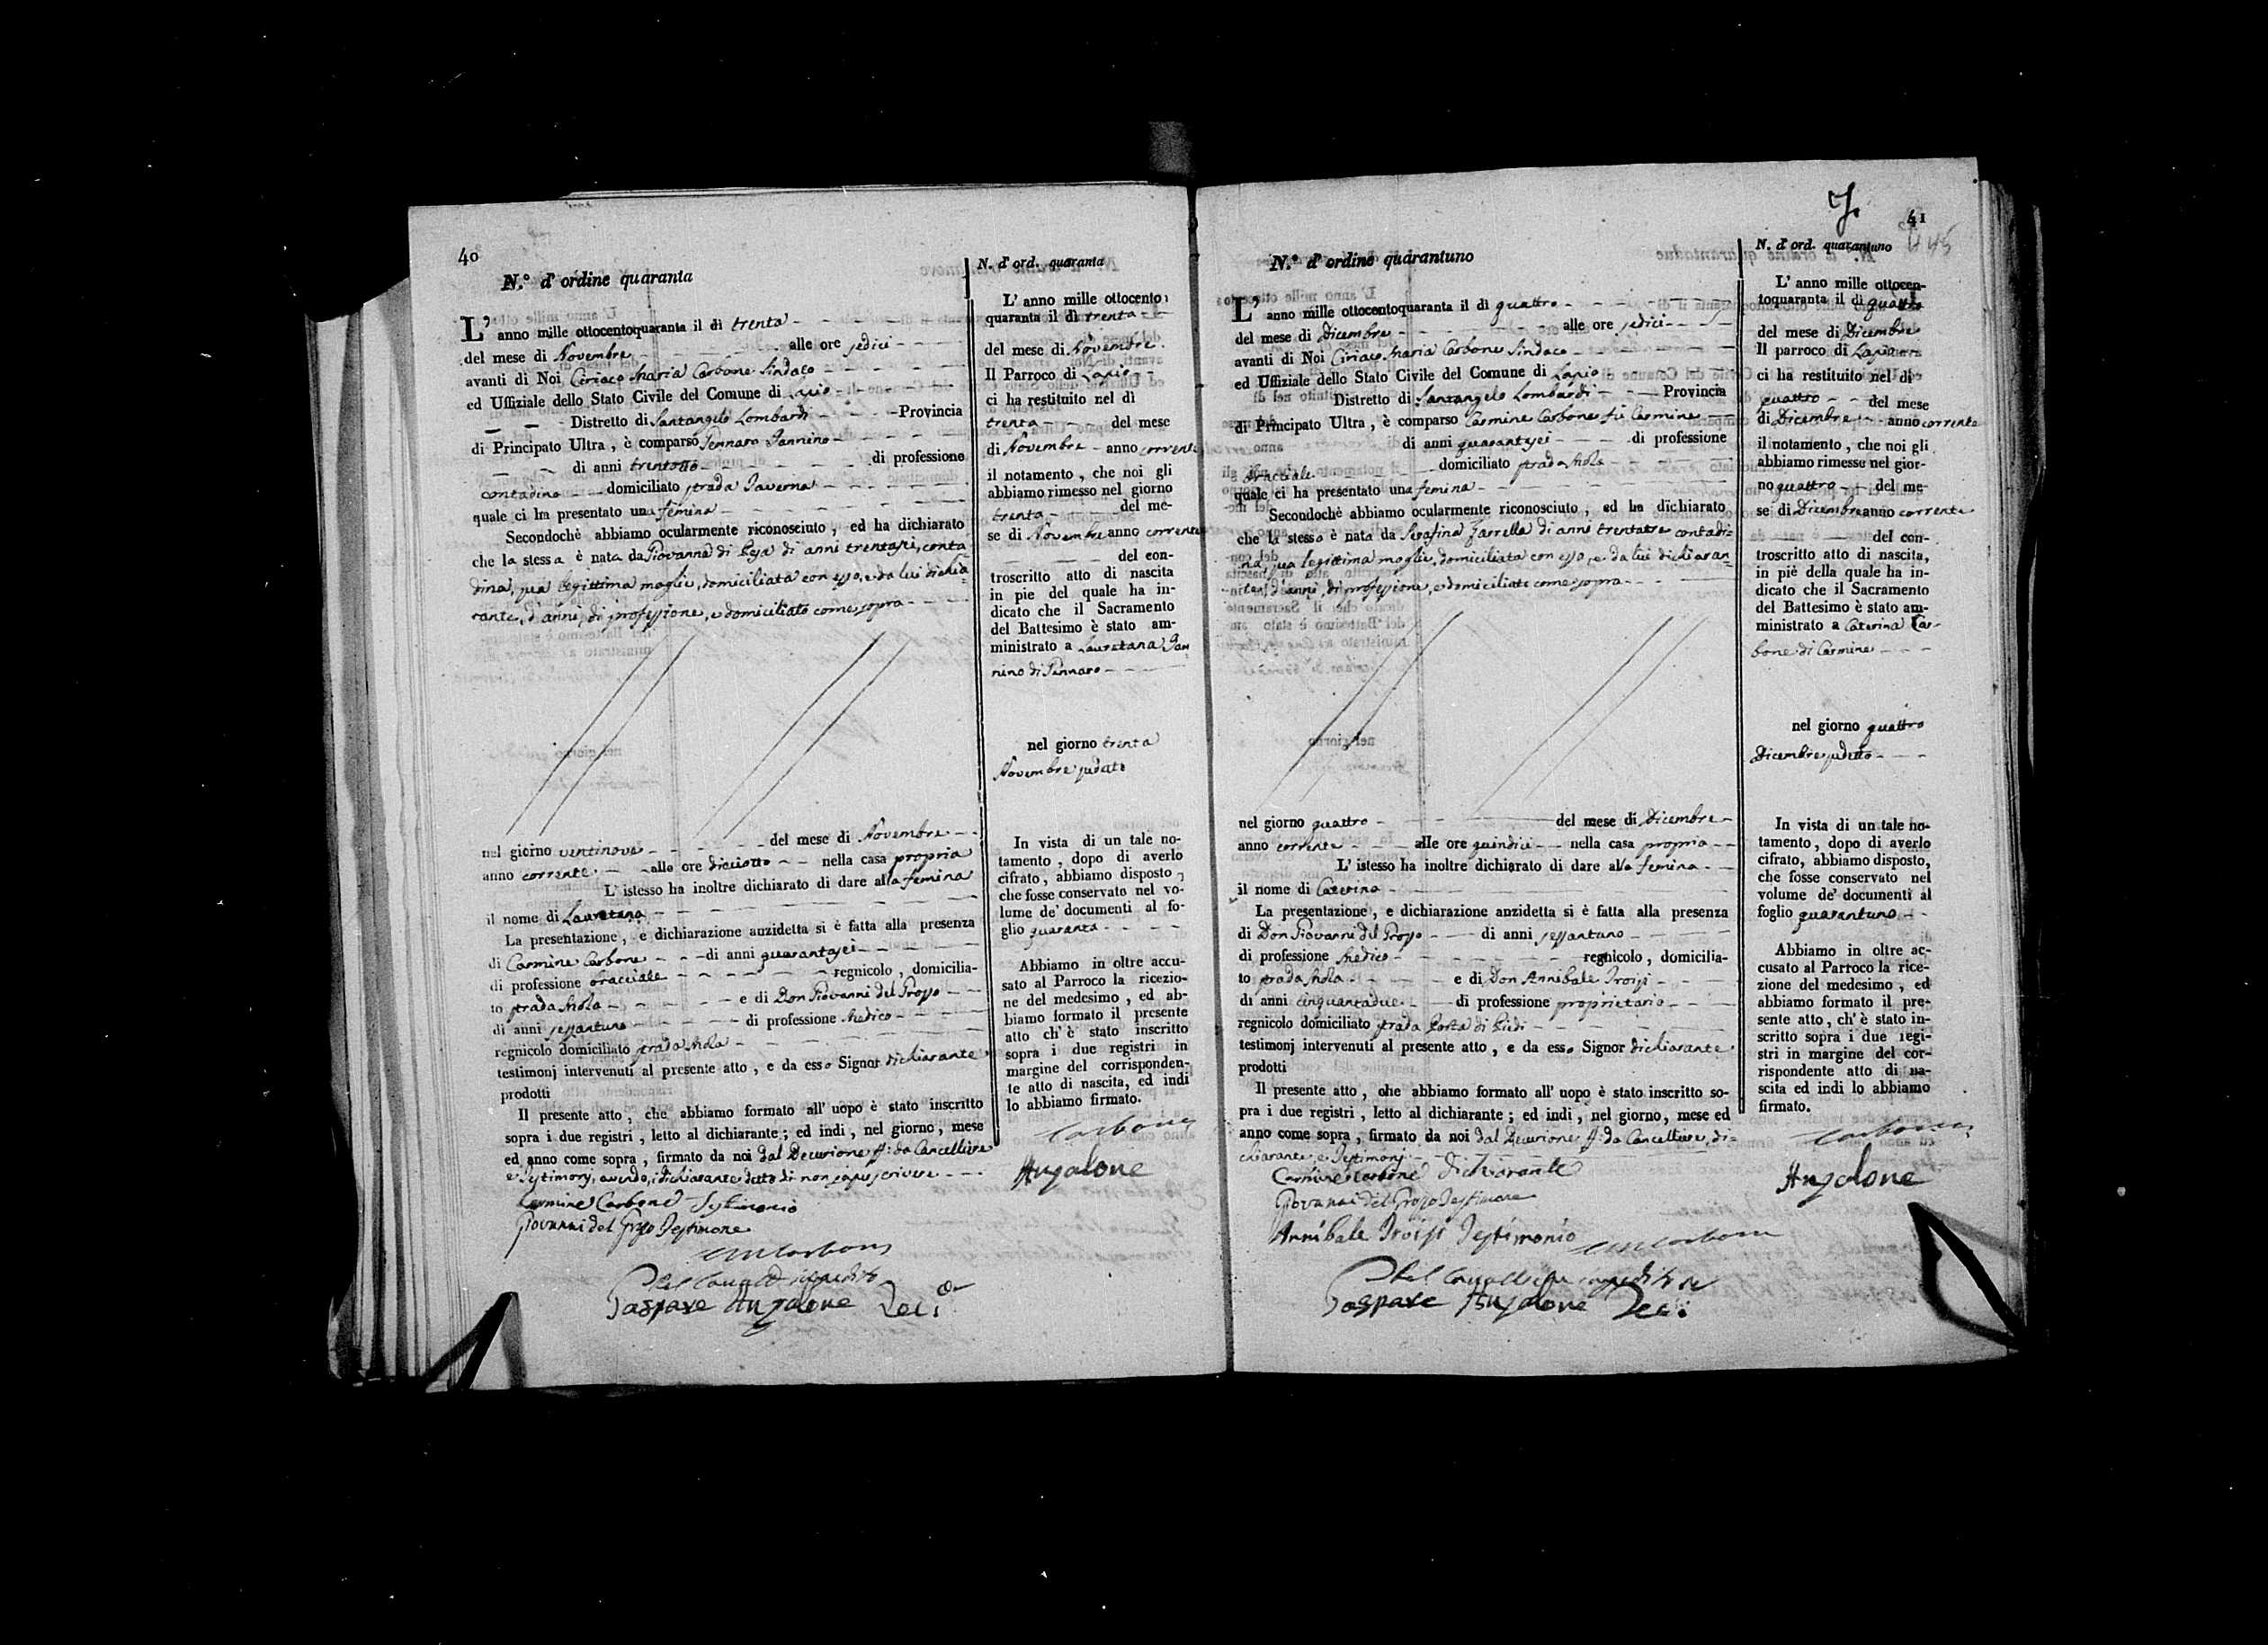 40
N.° d' ordine quaranta
L' anno mille ottocentoquaranta il dì trenta
del mese di Novembre alle ore sedici
avanti di Noi Ciriaco Maria Carbone Sindaco
ed Uffiziale dello Stato Civile del Comune di Lapio
Distretto di Santangelo Lombardi Provincia
di Principato Ultra, è comparso Gennaro Iannino
di anni trentotto di professione
contadino domiciliato strada Taverna
quale ci ha presentato una femina
Secondochè abbiamo ocularmente riconosciuto, ed ha dichiarato
che la stessa è nata da Giovanna di di anni trentasei, conta-
dina, sua legittima moglie, domiciliata con esso, e da lui dichia-
rante, d'anni, di professione, e domiciliato come sopra
nel giorno ventinove del mese di Novembre
anno corrente alle ore dieciotto nella casa propria
L' istesso ha inoltre dichiarato di dare alla femina
il nome di Lauretana
La presentazione, e dichiarazione anzidetta si è fatta alla presenza
di Carmine Carbone di anni quarantasei
di professione bracciale regnicolo, domicilia-
to strada Mola e di Don Giovanni del Grosso
di anni sessantuno di professione Medico
regnicolo domiciliato strada Mola
testimonj intervenuti al presente atto, e da esso Signor dichiarante
prodotti
Il presente atto, che abbiamo formato all' uopo è stato inscritto
sopra i due registri, letto al dichiarante; ed indi, nel giorno, mese
ed anno come sopra, firmato da noi dal Decurione ff: da Cancelliere
e Testimonj, avendo, il dichiarante detto di non saper scrivere
Carmine Carbone Testimonio
Giovanni del Grosso Testimone
Carbone
Pel impedito
Gaspare Anzalone
N. d' ord. quaranta
L' anno mille ottocento
quaranta il dì trenta
del mese di Novembre
Il Parroco di Lapio
ci ha restituito nel dì
trenta del mese
di Novembre anno corrente
il notamento, che noi gli
abbiamo rimesso nel giorno
trenta del me-
se di Novembre anno corrente
del con-
troscritto atto di nascita
in pie del quale ha in-
dicato che il Sacramento
del Battesimo è stato am-
ministrato a Lauretana Ian-
nino di Gennaro
nel giorno trenta
Novembre sudetto
In vista di un tale no-
tamento, dopo di averlo
cifrato, abbiamo disposto,
che fosse conservato nel vo-
lume de' documenti al fo-
glio quaranta
Abbiamo in oltre accu-
sato al Parroco la ricezio-
ne del medesimo, ed ab-
biamo formato il presente
atto ch' è stato inscritto
sopra i due registri in
margine del corrisponden-
te atto di nascita, ed indi
lo abbiamo firmato.
Carbone
Anzalone
41
N.° d' ordine quarantuno
L' anno mille ottocentoquaranta il dì quattro
del mese di Dicembre alle ore sedici
avanti di Noi Ciriaco Maria Carbone Sindaco
ed Uffiziale dello Stato Civile del Comune di Lapio
Distretto di Santangelo Lombardi Provincia
di Principato Ultra, è comparso Carmine Carbone fu Carmine
di anni quarantasei di professione
bracciale domiciliato strada Mola
quale ci ha presentato una femina
Secondochè abbiamo ocularmente riconosciuto, ed ha dichiarato
che la stessa è nata da Serafina Farrella di anni trentatre contadi-
na, sua legittima moglie, domiciliata con esso, e da lui dichiaran-
te, d'anni, di professione, e domiciliato come sopra
nel giorno quattro del mese di Dicembre
anno corrente alle ore quindici nella casa propria
L' istesso ha inoltre dichiarato di dare alla femina
il nome di Caterina
La presentazione, e dichiarazione anzidetta si è fatta alla presenza
di Don Giovanni del Grosso di anni sessantuno
di professione Medico regnicolo, domicilia-
to strada Mola e di Don Annibale Troisi
di anni cinquantadue di professione proprietario
regnicolo domiciliato strada Porta di Piedi
testimonj intervenuti al presente atto, e da esso Signor dichiarante
prodotti
Il presente atto, che abbiamo formato all' uopo è stato inscritto so-
pra i due registri, letto al dichiarante; ed indi, nel giorno, mese ed
anno come sopra, firmato da noi dal Decurione ff: da Cancelliere, di-
chiarante, e Testimonj
Carmine Carbone dichiarante
Giovanni del Grosso Testimone
Annibale Troisi Testimonio
Carbone
Pel impedito
Gaspare Anzalone
N. d' ord. quarantuno
L' anno mille ottocen-
toquaranta il dì quattro
del mese di Dicembre
Il parroco di Lapio
ci ha restituito nel dì
quattro del mese
di Dicembre anno corrente
il notamento, che noi gli
abbiamo rimesse nel gior-
no quattro del me-
se di Dicembre anno corrente
del con-
troscritto atto di nascita,
in piè della quale ha in-
dicato che il Sacramento
del Battesimo è stato am-
ministrato a Caterina Car-
bone di Carmine
nel giorno quattro
Dicembre sudetto
In vista di un tale no-
tamento, dopo di averlo
cifrato, abbiamo disposto,
che fosse conservato nel
volume de' documenti al
foglio quarantuno
Abbiamo in oltre ac-
cusato al Parroco la rice-
zione del medesimo, ed
abbiamo formato il pre-
sente atto, ch' è stato in-
scritto sopra i due regi-
stri in margine del cor-
rispondente atto di na-
scita ed indi lo abbiamo
firmato.
Carbone
Anzalone